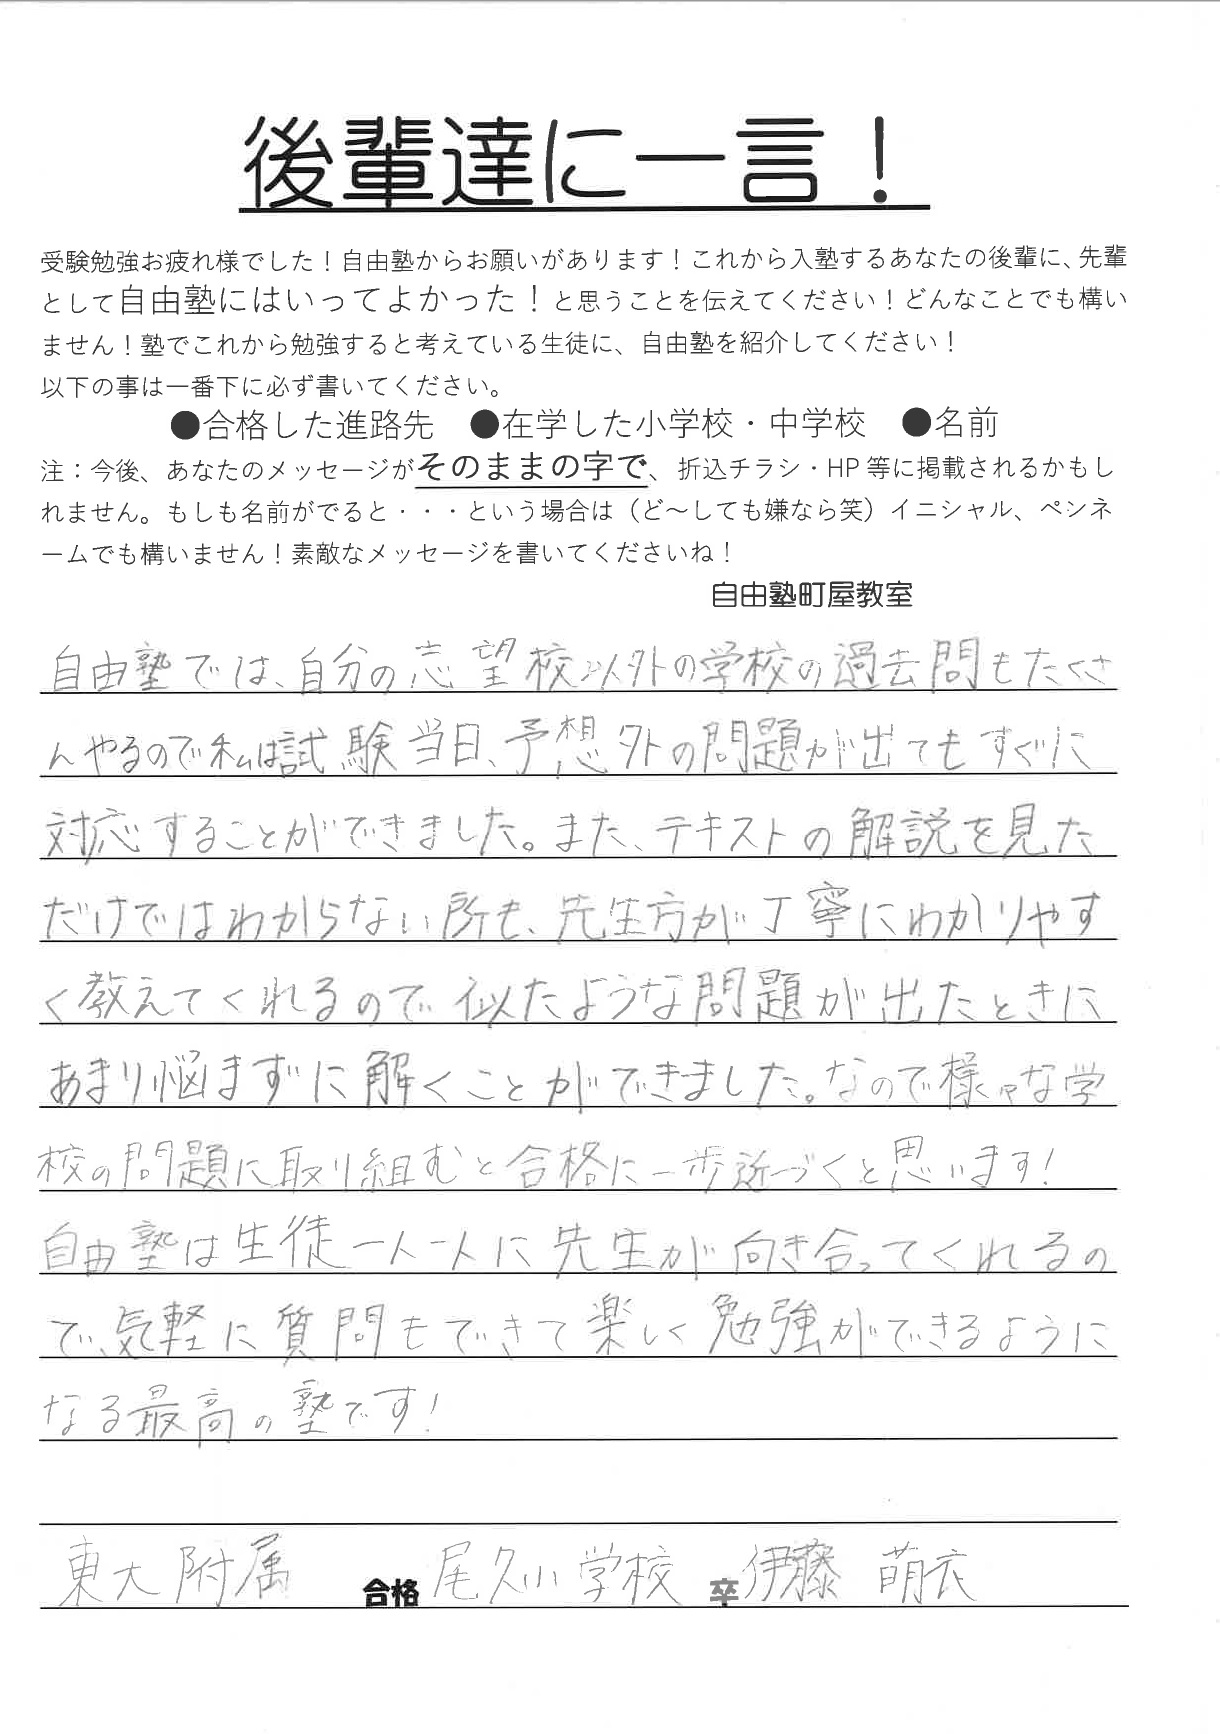 後輩達に一言！
受験勉強お疲れ様でした！自由塾からお願いがあります！これから入塾するあなたの後輩に、先輩
として自由塾にはいってよかった！と思うことを伝えてください！どんなことでも構い
ません！塾でこれから勉強すると考えている生徒に、自由塾を紹介してください！
以下の事は一番下に必ず書いてください。
●合格した進路先　●在学した小学校・中学校　●名前
注：今後、あなたのメッセージがそのままの字で、折込チラシ・HP 等に掲載されるかもし
れません。もしも名前がでると・・・という場合は（ど～しても嫌なら笑）イニシャル、ペンネ
ームでも構いません！素敵なメッセージを書いてくださいね！
自由塾町屋教室
自由塾では、自分の志望校以外の学校の過去問もたくさ
んやるので私は試験当日、予想外の問題が出てもすぐに
対応することができました。また、テキストの解説を見た
だけではわからない所も、先生方が丁寧にわかりやす
く教えてくれるので似たような問題が出たときに
あまり悩まずに解くことができました。なので様々な学
校の問題に取り組むと合格に一歩近づくと思います！
自由塾は生徒一人一人に先生が向き合ってくれるの
で、気軽に質問もできて楽しく勉強ができるように
なる最高の塾です！
東大附属　合格　尾久小学校　卒　伊藤　萌衣